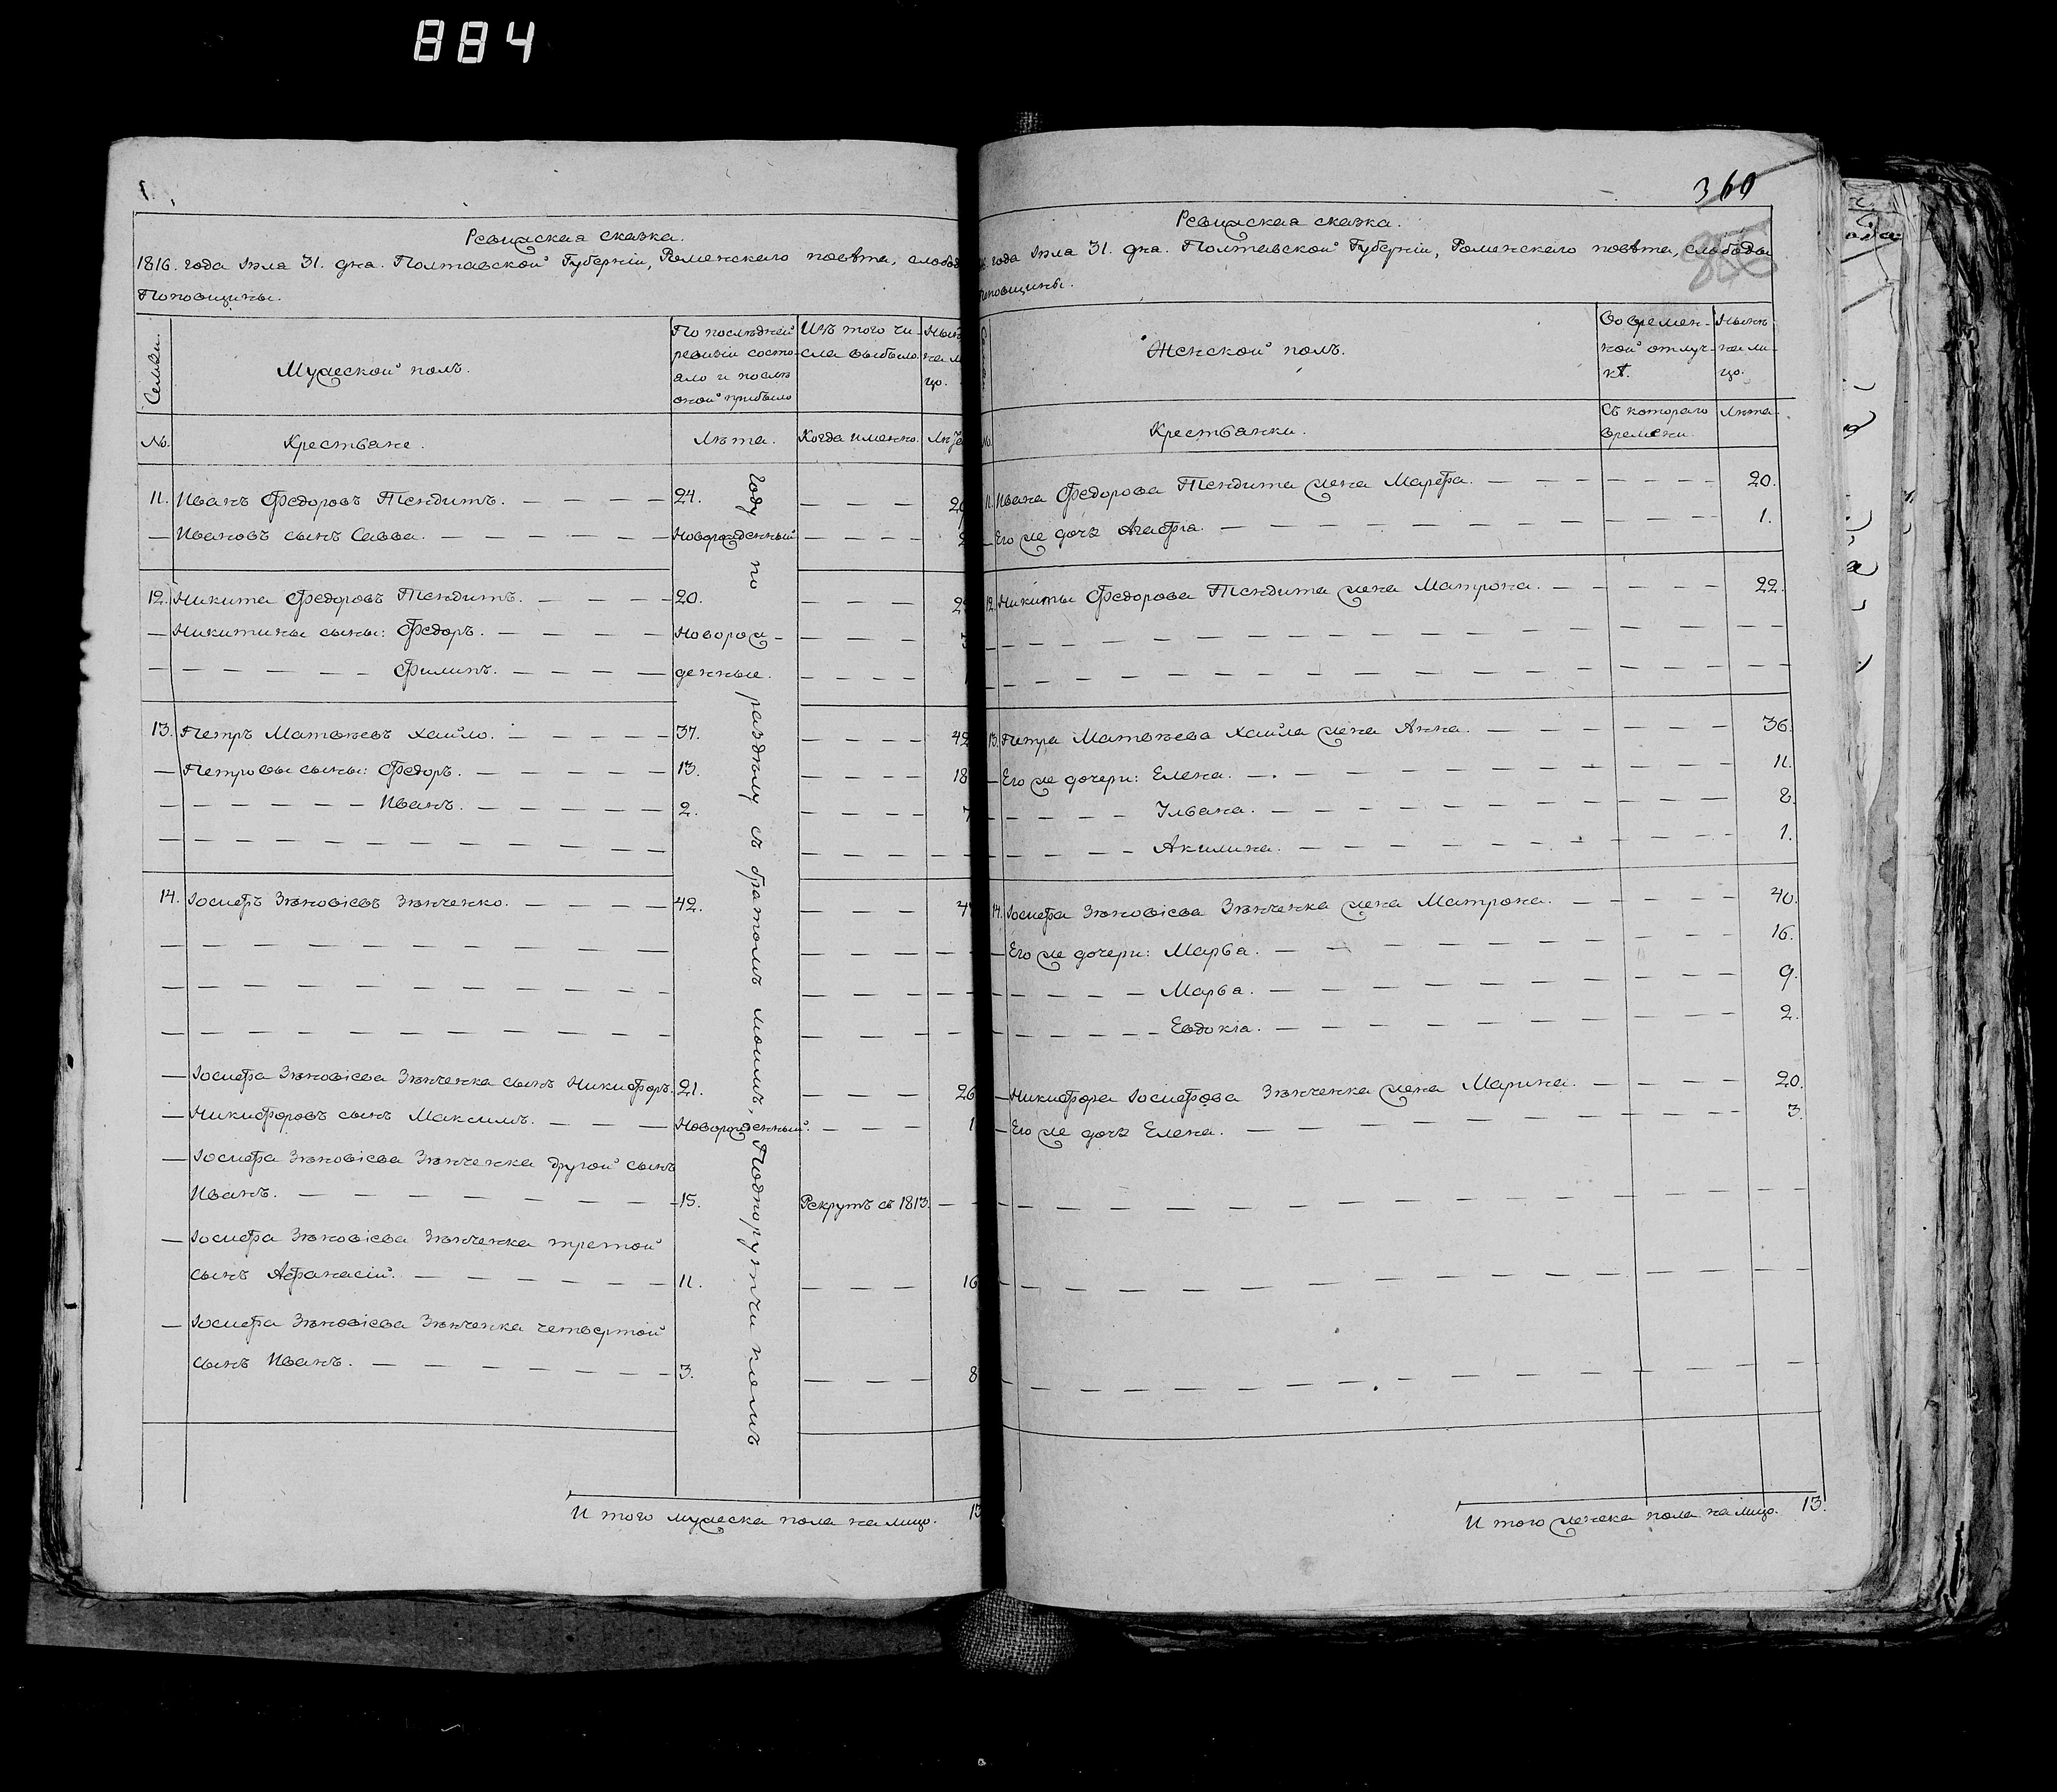 884
Ревижская сказка.
1816. года Іюла 31. дна. Полтавской Губерніи, Роменскаго повѣта, слобод
Поповщины.
Семьи.
Мужеской полъ.
По послѣдней
ревизіи состо-
яло и послѣ
оной прибыло
Изъ того чи-
сла выбыло.
Нынѣ
на ли
цо.
№.
Крестьане.
Лѣта.
Когда именно.
Лѣта
11. Иванъ Федоровъ Тендитъ. 24. 29
Ивановъ сынъ Савва. Новорожденный 2
12. Никита Федоровъ Тендитъ. 20. 2
Никитины сыны: Федоръ. Новорож- 3
Филипъ. денные.
13. Петръ Матвѣевъ Хайло. 37. 42
Петровы сыны: Федоръ. 13. 18
Иванъ. 2. 7
14. Іосифъ Зѣновіевъ Зѣнченко. 42. 4
Іосифа Зѣновіева Зѣнченка сынъ Никифоръ. 21. 26
Никифоровъ сынъ Максимъ. Новорожденный. 1
Іосифа Зѣновіева Зѣнченка другой сынъ
Иванъ. 15. Рекрутъ съ 1813.
Іосифа Зѣновіева Зѣнченка третой
сынъ Афанасій. 11. 16
Іосифа Зѣновіева Зѣнченка четвертой
сынъ Иванъ. 3. 8
году по раздѣлу съ братомъ моимъ, Подпорутчикомъ
И того мужеска пола на лицо. 13
360
Ревижская сказка.
года Іюла 31. дна. Полтавской Губерніи, Роменскаго повѣта, слободы
Поповщины.
Женской полъ.
Во времен-
ной отлуч-
кѣ.
Нынѣ
на ли-
цо.
№.
Крестьанки.
Съ котораго
времени.
Лѣта.
11. Ивана Федорова Тендита жена Марфа. 20.
Его же дочь Агафіа. 1.
12. Никиты Федорова Тендита жена Матрона. 22.
13. Петра Матвѣева Хайла жена Анна. 36.
Его же дочери: Елена. 11.
Ульана. 8.
Акилина. 1.
14. Іосифа Зѣновіева Зѣнченка жена Матрона. 40.
Его же дочери: Марьа. 16.
Марьа. 9.
Евдокіа. 2.
Никифора Іосифова Зѣнченка жена Марина. 20.
Его же дочь Елена. 3.
И того женска пола на лицо. 13.